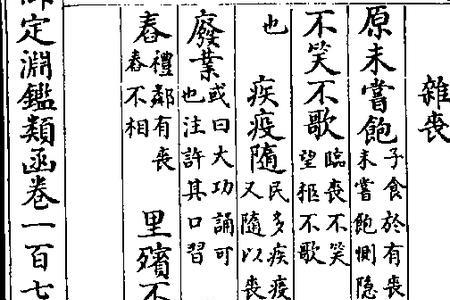 雜喪
原未嘗飽子食於有喪未嘗飽惻隐
不笑不歌臨喪不笑望柩不歌
也 疾疫隨民多疾疫又隨以喪
廢業或曰大功誦可也注許其口習
舂禮鄰有喪舂不相 里殯不
定淵鑑類函卷一百七